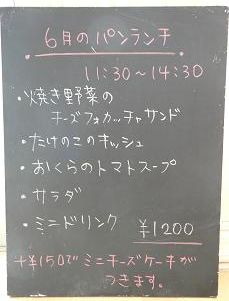 6月のパンランチ
11:30~14:30
・焼き野菜の
チーズフォカッチャサンド
・たけのこのキッシュ
・おくらのトマトスープ
・サラダ
・ミニドリンク ¥1200
+¥150で ミニチーズケーキが
つきます。